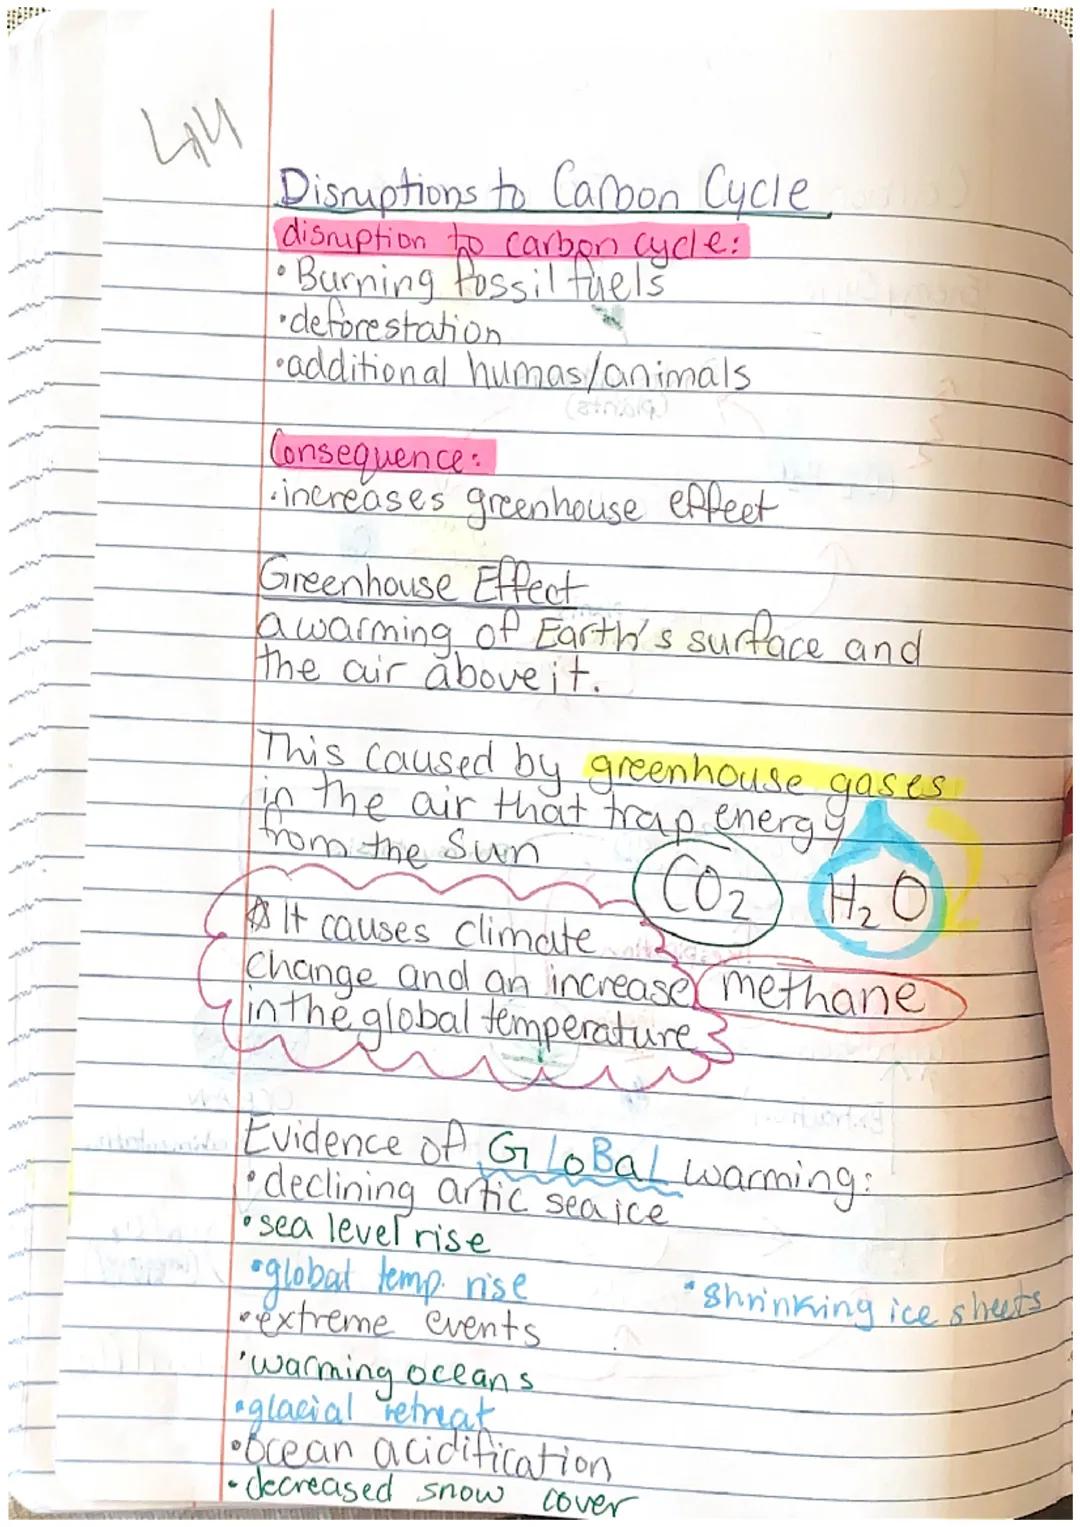 4/4
Disruptions to Carbon Cycle
disruption to carbon cycle:
• Burning fossil fuels
• deforestation
• additional humas/animals
Consequence:
• increases greenhouse effect
Greenhouse Effect
a warming of Earth's surface and
the air above it.
This caused by greenhouse gases
in the air that trap energy
from the Sun
CO2 H2O
It causes climate
change and an increase methane
in the global temperature
Evidence of GloBal warming:
• declining artic sea ice
• sea level rise
• global temp. rise
• shrinking ice sheets
• extreme events
• warming oceans
• glacial retreat
• Ocean acidification
• decreased snow cover